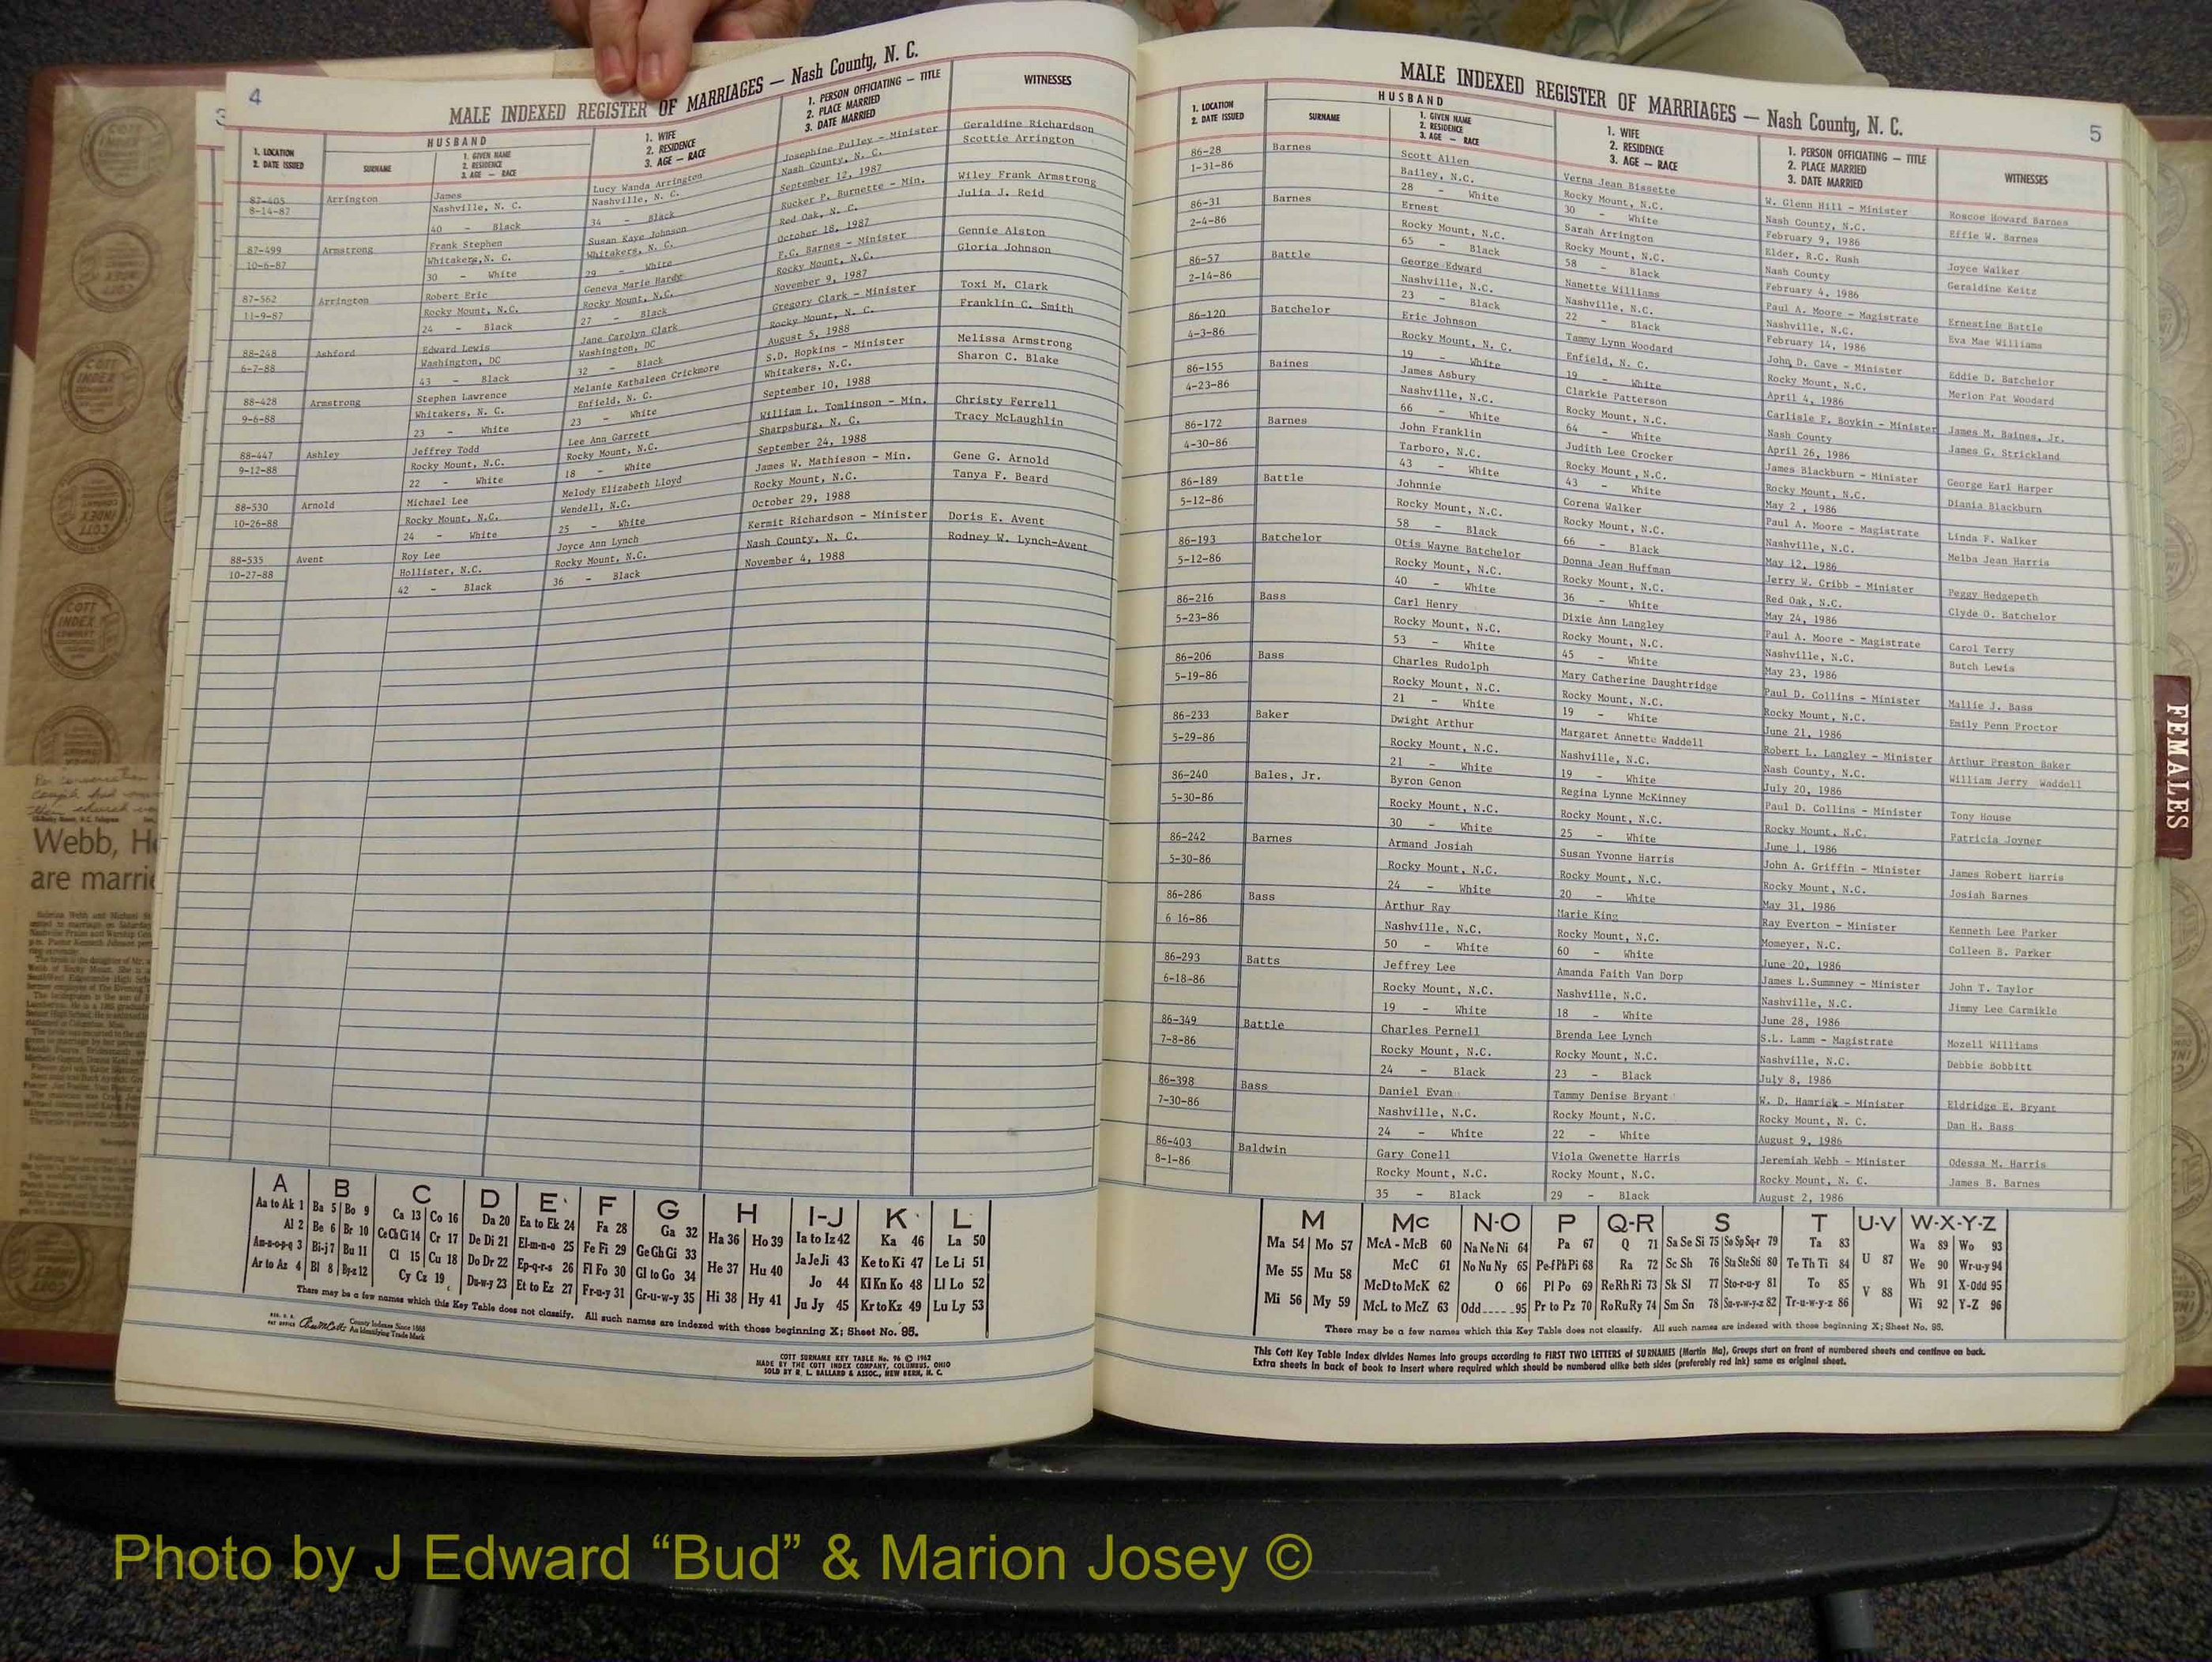 4
MALE INDEXED REGISTER OF MARRIAGES — Nash County, N. C.
1. LOCATION
2. DATE ISSUED
HUSBAND
SURNAME
1. GIVEN NAME
2. RESIDENCE
3. AGE — RACE
1. WIFE
2. RESIDENCE
3. AGE — RACE
1. PERSON OFFICIATING — TITLE
2. PLACE MARRIED
3. DATE MARRIED
WITNESSES
87-405 Arrington James Lucy Wanda Arrington Josephine Pulley - Minister Geraldine Richardson
8-14-87 Nashville, N. C. Nashville, N. C. Nash County, N. C. Scottie Arrington
40 - Black 34 - Black September 12, 1987
87-499 Armstrong Frank Stephen Susan Kaye Johnson Rucker P. Burnette - Min. Wiley Frank Armstrong
10-6-87 Whitakers,N. C. Whitakers, N. C. Red Oak, N. C. Julia J. Reid
30 - White 29 - White October 18, 1987
87-562 Arrington Robert Eric Geneva Marie Hardy F.C. Barnes - Minister Gennie Alston
11-9-87 Rocky Mount, N.C. Rocky Mount, N.C. Rocky Mount, N.C. Gloria Johnson
24 - Black 27 - Black November 9, 1987
88-248 Ashford Edward Lewis Jane Carolyn Clark Gregory Clark - Minister Toxi M. Clark
6-7-88 Washington, DC Washington, DC Rocky Mount, N. C. Franklin C. Smith
43 - Black 32 - Black August 5, 1988
88-428 Armstrong Stephen Lawrence Melanie Kathaleen Crickmore S.D. Hopkins - Minister Melissa Armstrong
9-6-88 Whitakers, N. C. Enfield, N. C. Whitakers, N.C. Sharon C. Blake
23 - White 23 - White September 10, 1988
88-447 Ashley Jeffrey Todd Lee Ann Garrett William L. Tomlinson - Min. Christy Ferrell
9-12-88 Rocky Mount, N.C. Rocky Mount, N.C. Sharpsburg, N. C. Tracy McLaughlin
22 - White 18 - White September 24, 1988
88-530 Arnold Michael Lee Melody Elizabeth Lloyd James W. Mathieson - Min. Gene G. Arnold
10-26-88 Rocky Mount, N.C. Wendell, N.C. Rocky Mount, N.C. Tanya F. Beard
24 - White 25 - White October 29, 1988
88-535 Avent Roy Lee Joyce Ann Lynch Kermit Richardson - Minister Doris E. Avent
10-27-88 Hollister, N.C. Rocky Mount, N.C. Nash County, N. C. Rodney W. Lynch-Avent
42 - Black 36 - Black November 4, 1988
A B C D E F G H I-J K L
Aa to Ak 1 Ba 5 Bo 9 Ca 13 Co 16 Da 20 Ea to Ek 24 Fa 28 Ga 32 Ha 36 Ho 39 Ia to Iz 42 Ka 46 La 50
Al 2 Be 6 Br 10 Ce Ch Ci 14 Cr 17 De Di 21 El-m-n-o 25 Fe Fi 29 Ge Gh Gi 33 Ja Je Ji 43 Ke to Ki 47 Le Li 51
Am-n-o-p-q 3 Bi-j 7 Bu 11 Cl 15 Cu 18 Do Dr 22 Ep-q-r-s 26 Fl Fo 30 Gl to Go 34 He 37 Hu 40 Jo 44 Kl Kn Ko 48 Ll Lo 52
Ar to Az 4 Bl 8 By-z 12 Cy Cz 19 Du-w-y 23 Et to Ez 27 Fr-u-y 31 Gr-u-w-y 35 Hi 38 Hy 41 Ju Jy 45 Kr to Kz 49 Lu Ly 53
There may be a few names which this Key Table does not classify. All such names are indexed with those beginning X; Sheet No. 95.
County Indexes Since 1888
An Identifying Trade Mark
COTT SURNAME KEY TABLE No. 96 © 1962
MADE BY THE COTT INDEX COMPANY, COLUMBUS, OHIO
SOLD BY R. L. BALLARD & ASSOC., NEW BERN, N. C.
MALE INDEXED REGISTER OF MARRIAGES — Nash County, N. C.
5
1. LOCATION
2. DATE ISSUED
HUSBAND
SURNAME
1. GIVEN NAME
2. RESIDENCE
3. AGE — RACE
1. WIFE
2. RESIDENCE
3. AGE — RACE
1. PERSON OFFICIATING — TITLE
2. PLACE MARRIED
3. DATE MARRIED
WITNESSES
86-28 Barnes Scott Allen Verna Jean Bissette W. Glenn Hill - Minister Roscoe Howard Barnes
1-31-86 Bailey, N.C. Rocky Mount, N.C. Nash County, N.C. Effie W. Barnes
28 - White 30 - White February 9, 1986
86-31 Barnes Ernest Sarah Arrington Elder, R.C. Rush Joyce Walker
2-4-86 Rocky Mount, N.C. Rocky Mount, N.C. Nash County Geraldine Keitz
65 - Black 58 - Black February 4, 1986
86-57 Battle George Edward Nanette Williams Paul A. Moore - Magistrate Ernestine Battle
2-14-86 Nashville, N.C. Nashville, N.C. Nashville, N.C. Eva Mae Williams
23 - Black 22 - Black February 14, 1986
86-120 Batchelor Eric Johnson Tammy Lynn Woodard John D. Cave - Minister Eddie D. Batchelor
4-3-86 Rocky Mount, N. C. Enfield, N. C. Rocky Mount, N.C. Merion Pat Woodard
19 - White 19 - White April 4, 1986
86-155 Baines James Asbury Clarkie Patterson Carlisle F. Boykin - Minister James M. Baines, Jr.
4-23-86 Nashville, N.C. Rocky Mount, N.C. Nash County James G. Strickland
66 - White 64 - White April 26, 1986
86-172 Barnes John Franklin Judith Lee Crocker James Blackburn - Minister George Earl Harper
4-30-86 Tarboro, N.C. Rocky Mount, N.C. Rocky Mount, N.C. Diania Blackburn
43 - White 43 - White May 2 , 1986
86-189 Battle Johnnie Corena Walker Paul A. Moore - Magistrate Linda F. Walker
5-12-86 Rocky Mount, N.C. Rocky Mount, N.C. Nashville, N.C. Melba Jean Harris
58 - Black 66 - Black May 12, 1986
86-193 Batchelor Otis Wayne Batchelor Donna Jean Huffman Jerry W. Cribb - Minister Peggy Hedgepeth
5-12-86 Rocky Mount, N.C. Rocky Mount, N.C. Red Oak, N.C. Clyde O. Batchelor
40 - White 36 - White May 24, 1986
86-216 Bass Carl Henry Dixie Ann Langley Paul A. Moore - Magistrate Carol Terry
5-23-86 Rocky Mount, N.C. Rocky Mount, N.C. Nashville, N.C. Butch Lewis
53 - White 45 - White May 23, 1986
86-206 Bass Charles Rudolph Mary Catherine Daughtridge Paul D. Collins - Minister Mallie J. Bass
5-19-86 Rocky Mount, N.C. Rocky Mount, N.C. Rocky Mount, N.C. Emily Penn Proctor
21 - White 19 - White June 21, 1986
86-233 Baker Dwight Arthur Margaret Annette Waddell Robert L. Langley - Minister Arthur Preston Baker
5-29-86 Rocky Mount, N.C. Nashville, N.C. Nash County, N.C. William Jerry Waddell
21 - White 19 - White July 20, 1986
86-240 Bales, Jr. Byron Genon Regina Lynne McKinney Paul D. Collins - Minister Tony House
5-30-86 Rocky Mount, N.C. Rocky Mount, N.C. Rocky Mount, N.C. Patricia Joyner
30 - White 25 - White June 1, 1986
86-242 Barnes Armand Josiah Susan Yvonne Harris John A. Griffin - Minister James Robert Harris
5-30-86 Rocky Mount, N.C. Rocky Mount, N.C. Rocky Mount, N.C. Josiah Barnes
24 - White 20 - White May 31, 1986
86-286 Bass Arthur Ray Marie King Ray Everton - Minister Kenneth Lee Parker
6 16-86 Nashville, N.C. Rocky Mount, N.C. Momeyer, N.C. Colleen B. Parker
50 - White 60 - White June 20, 1986
86-293 Batts Jeffrey Lee Amanda Faith Van Dorp James L.Summney - Minister John T. Taylor
6-18-86 Rocky Mount, N.C. Nashville, N.C. Nashville, N.C. Jimmy Lee Carmikle
19 - White 18 - White June 28, 1986
86-349 Battle Charles Pernell Brenda Lee Lynch S.L. Lamm - Magistrate Mozell Williams
7-8-86 Rocky Mount, N.C. Rocky Mount, N.C. Nashville, N.C. Debbie Bobbitt
24 - Black 23 - Black July 8, 1986
86-398 Bass Daniel Evan Tammy Denise Bryant W. D. Hamrick - Minister Eldridge E. Bryant
7-30-86 Nashville, N.C. Rocky Mount, N.C. Rocky Mount, N. C. Dan H. Bass
24 - White 22 - White August 9, 1986
86-403 Baldwin Gary Conell Viola Gwenette Harris Jeremiah Webb - Minister Odessa M. Harris
8-1-86 Rocky Mount, N.C. Rocky Mount, N.C. Rocky Mount, N. C. James B. Barnes
35 - Black 29 - Black August 2, 1986
M Mc N-O P Q-R S T U-V W-X-Y-Z
Ma 54 Mo 57 McA - McB 60 Na Ne Ni 64 Pa 67 Q 71 Sa Se Si 75 So Sp Sq-r 79 Ta 83 U 87 Wa 89 Wo 93
Me 55 Mu 58 McC 61 No Nu Ny 65 Pe-f Ph Pi 68 Ra 72 Sc Sh 76 Sta Ste Sti 80 Te Th Ti 84 We 90 Wr-u-y 94
McD to McK 62 O 66 Pl Po 69 Re Rh Ri 73 Sk Sl 77 Sto-r-u-y 81 To 85 V 88 Wh 91 X-Odd 95
Mi 56 My 59 McL to McZ 63 Odd 95 Pr to Pz 70 Ro Ru Ry 74 Sm Sn 78 Su-v-w-y-z 82 Tr-u-w-y-z 86 Wi 92 Y-Z 96
There may be a few names which this Key Table does not classify. All such names are indexed with those beginning X; Sheet No. 95.
This Cott Key Table Index divides Names into groups according to FIRST TWO LETTERS of SURNAMES (Martin Ma), Groups start on front of numbered sheets and continue on back.
Extra sheets in back of book to insert where required which should be numbered alike both sides (preferably red ink) same as original sheet.
FEMALES
3
COTT
INDEX
COMPANY
Webb, H
are marri
Photo by J Edward “Bud” & Marion Josey ©